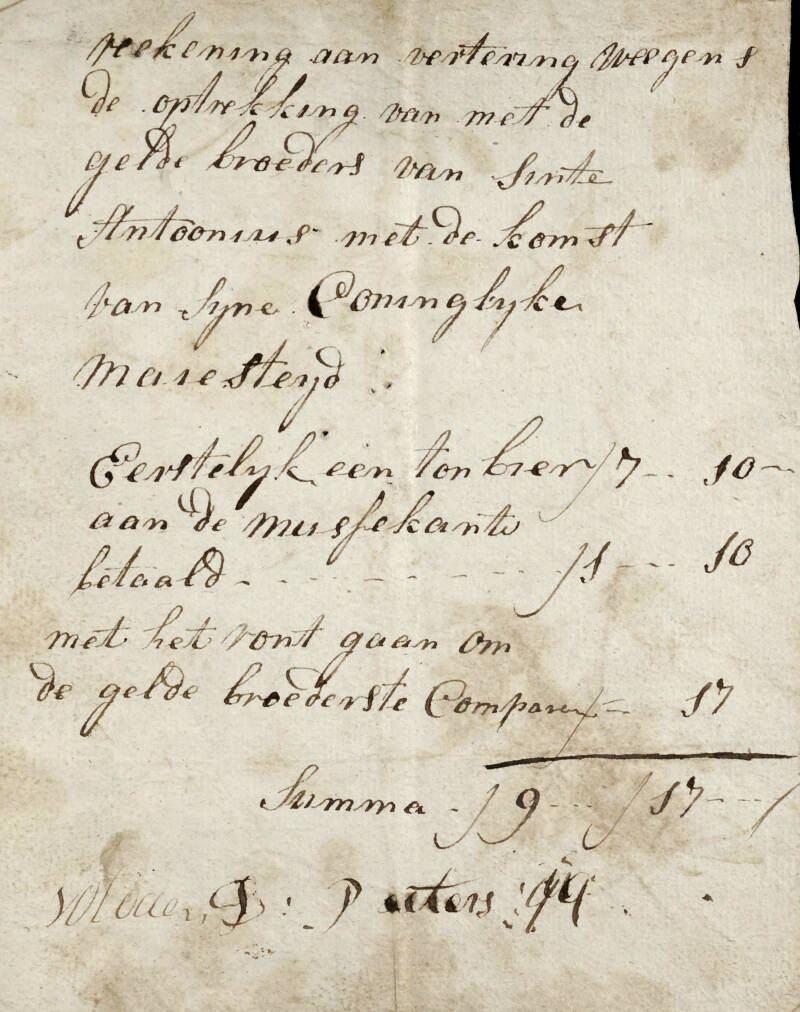 reekening aan vertering weegens
de optrekking van met de
gelde broeders van sinte
Antoonius met de komst
van syne Coninglyke
maiesteyd :
Eerstelyk een ton bier / 7 - - 10 -
aan de mussekante
betaald - - - - - - - - / 1 - - - 10
met het ront gaan om
de gelde broederste Comparen / - - 17
Summa - / 9 - - - / 17 - - /
Peeters